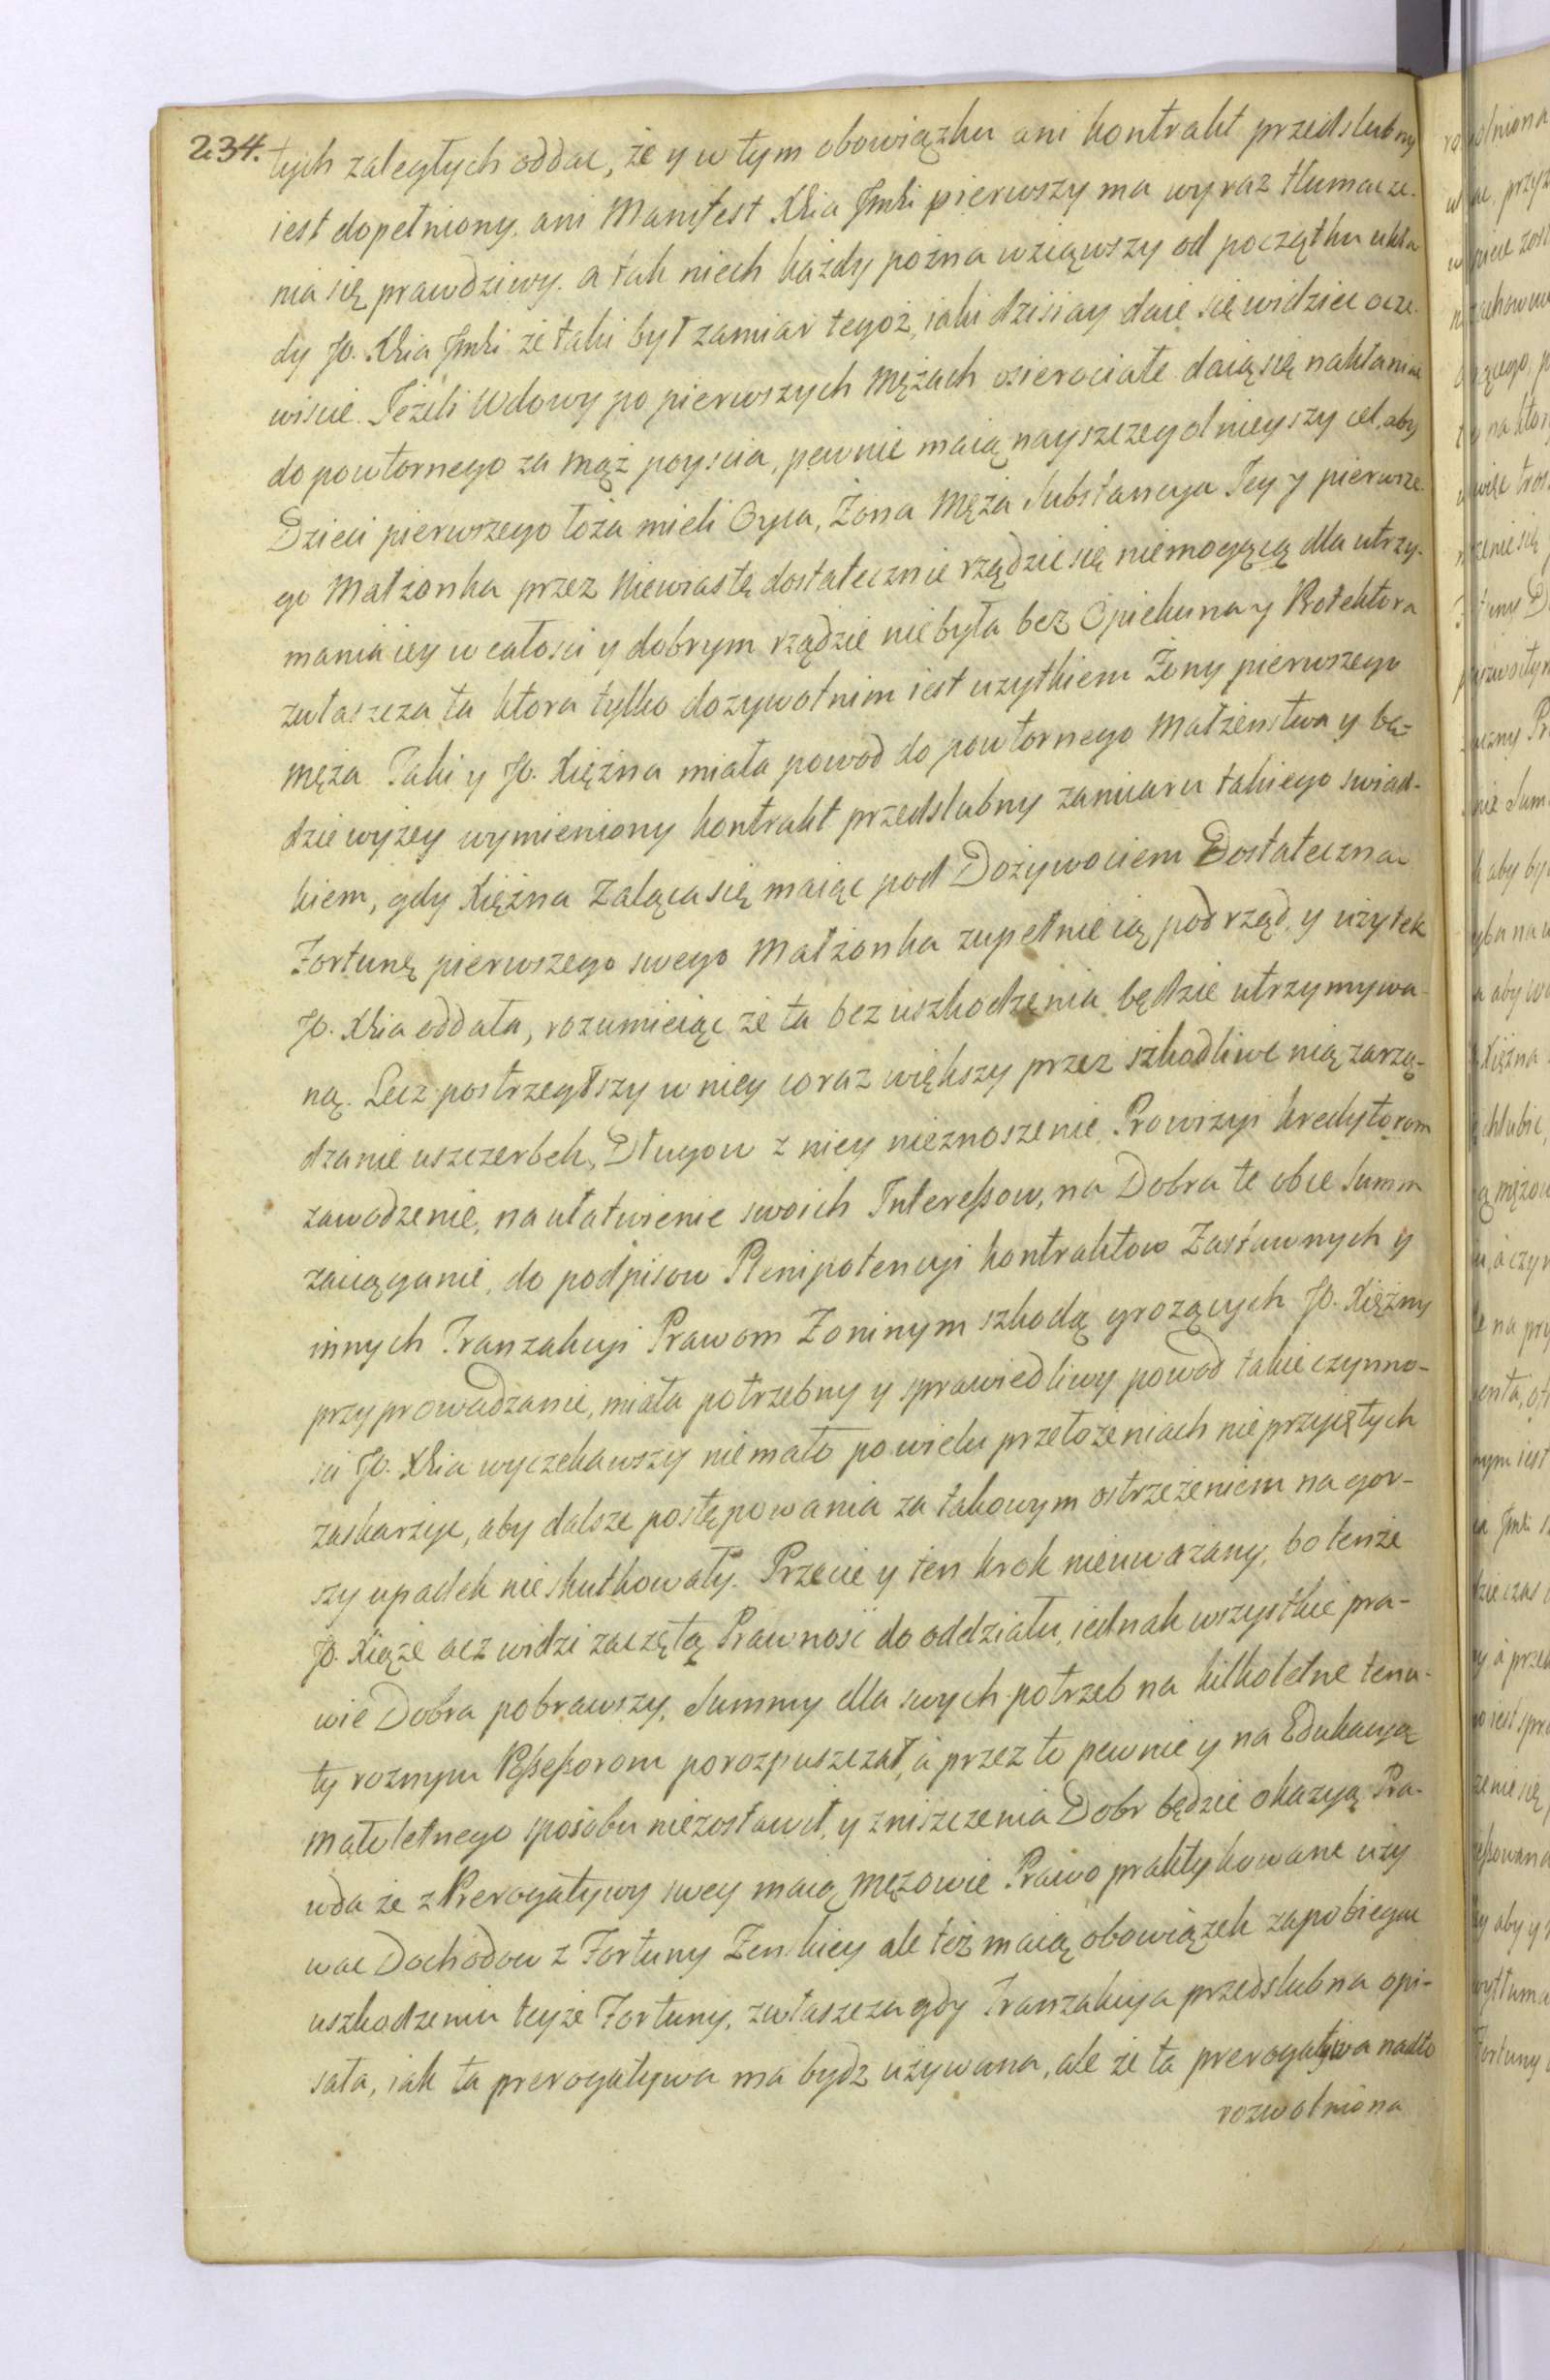 234.
tych zaległych oddac, że y w tym obowiązku ani kontrakt przedslubny
iest dopełniony, ani Manifest Xcia Jmści pierwszy ma wyraz tłumacze-
nia się prawdziwy. a tak niech każdy pozna wziąwszy od początku ukła
dy Jo. Xcia Jmści że taki był zamiar tegoż, iaki dzisiay daie się widziec ocze-
wiscie. Jeżeli Wdowy po pierwszych Mężach osierociałe daią się nakłaniac
do powtornego za mąż poyscia, pewnie maią nayszczegolnieyszy cel, aby
Dzieci pierwszego łoża mieli Oyca, Żona Męża Substancya Jey y pierwsze-
go Małżonka przez Niewiastę dostatecznie rządzic się niemogącą dla utrzy-
mania iey w całosci y dobrym rządzie nie była bez Opiekuna y Protektora
zwłaszcza ta ktora tylko dozywotnim iest uzytkiem Żony pierwszego
męża. Taki y Jo. Xiężna miała powod do powtornego Małżenstwa y bę-
dzie wyżey wymieniony kontrakt przedslubny zamiaru takiego swiad-
kiem, gdy Xiężna Żaląca się maiąc pod Dożywociem Dostateczna
Fortunę pierwszego swego Małżonka zupełnie ią pod rząd, y użytek
Jo. Xcia oddała, rozumieiąc że ta bez uszkodzenia będzie utrzymywa-
ną. Lecz postrzegłszy w niey coraz większy przez szkodliwe nią zarzą-
dzanie uszczerbek, Długow z niey nieznoszenie, Prowizyi kredytorom
zawodzenie, na ułatwienie swoich Interessow, na Dobra te obce Summ
zaciąganie, do podpisow Plenipotencyi kontraktow Zastawnych y
innych Tranzakcyi Prawom Żoninym szkodą grożących Jo. Xiężny
przyprowadzanie, miała potrzebny y sprawiedliwy powod takie czynno-
sci Jo. Xcia wyczekawszy nie mało po wielu przełożeniach nie przyiętych
zaskarżyc, aby dalsze postępowania za takowym ostrzeżeniem na gor-
szy upadek nieskutkowały. Przecie y ten krok nieuważany, bo tenże
Jo. Xiąże acz widzi zaczętą Prawnosć do oddziału, iednak wszystkie pra-
wie Dobra pobrawszy, Summy dla swych potrzeb na kilkoletne tenu-
ty roznym Possessorom porozpuszczał, á przez to pewnie y na Edukacyą
Małoletnego sposobu niezostawił, y zniszczenia Dobr będzie okazyą Pra-
wda że z Prerogatywy swey maią Mężowie Prawo praktykowane uży
wac Dochodow z Fortuny Żenskiey ale też maią obowiązek zapobiegac
uszkodzeniu teyże Fortuny, zwłaszcza gdy Tranzakcya przedslubna opi-
sała, iak ta prerogatywa ma bydz używana, ale że ta prerogatywa nadto
rozwolniona